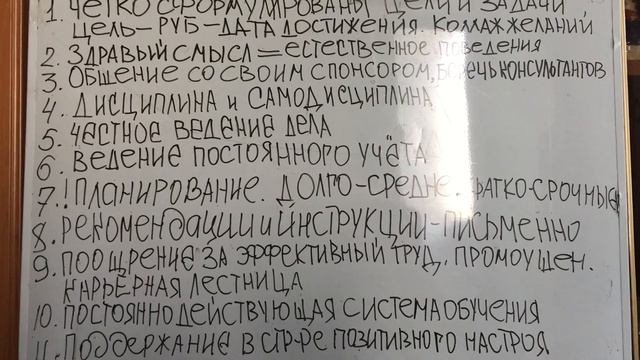 1. ЧЕТКО СФОРМУЛИРОВАНЫ ЦЕЛИ И ЗАДАЧИ
ЦЕЛЬ – РУБ – ДАТА ДОСТИЖЕНИЯ. КОЛЛАЖ ЖЕЛАНИЙ
2. ЗДРАВЫЙ СМЫСЛ = ЕСТЕСТВЕННОЕ ПОВЕДЕНИЯ
3. ОБЩЕНИЕ СО СВОИМ СПОНСОРОМ, БЕРЕЧЬ КОНСУЛЬТАНТОВ
4. ДИСЦИПЛИНА И САМОДИСЦИПЛИНА
5. ЧЕСТНОЕ ВЕДЕНИЕ ДЕЛА
6. ВЕДЕНИЕ ПОСТОЯННОГО УЧЁТА
7. ! ПЛАНИРОВАНИЕ. ДОЛГО-СРЕДНЕ. КРАТКО-СРОЧНЫЕ
8. РЕКОМЕНДАЦИИ И ИНСТРУКЦИИ – ПИСЬМЕННО
9. ПООЩРЕНИЕ ЗА ЭФФЕКТИВНЫЙ ТРУД. ПРОМОУШЕН.
КАРЬЕРНАЯ ЛЕСТНИЦА
10. ПОСТОЯННО ДЕЙСТВУЮЩАЯ СИСТЕМА ОБУЧЕНИЯ
11. ПОДДЕРЖАНИЕ В СТР-РЕ ПОЗИТИВНОГО НАСТРОЯ